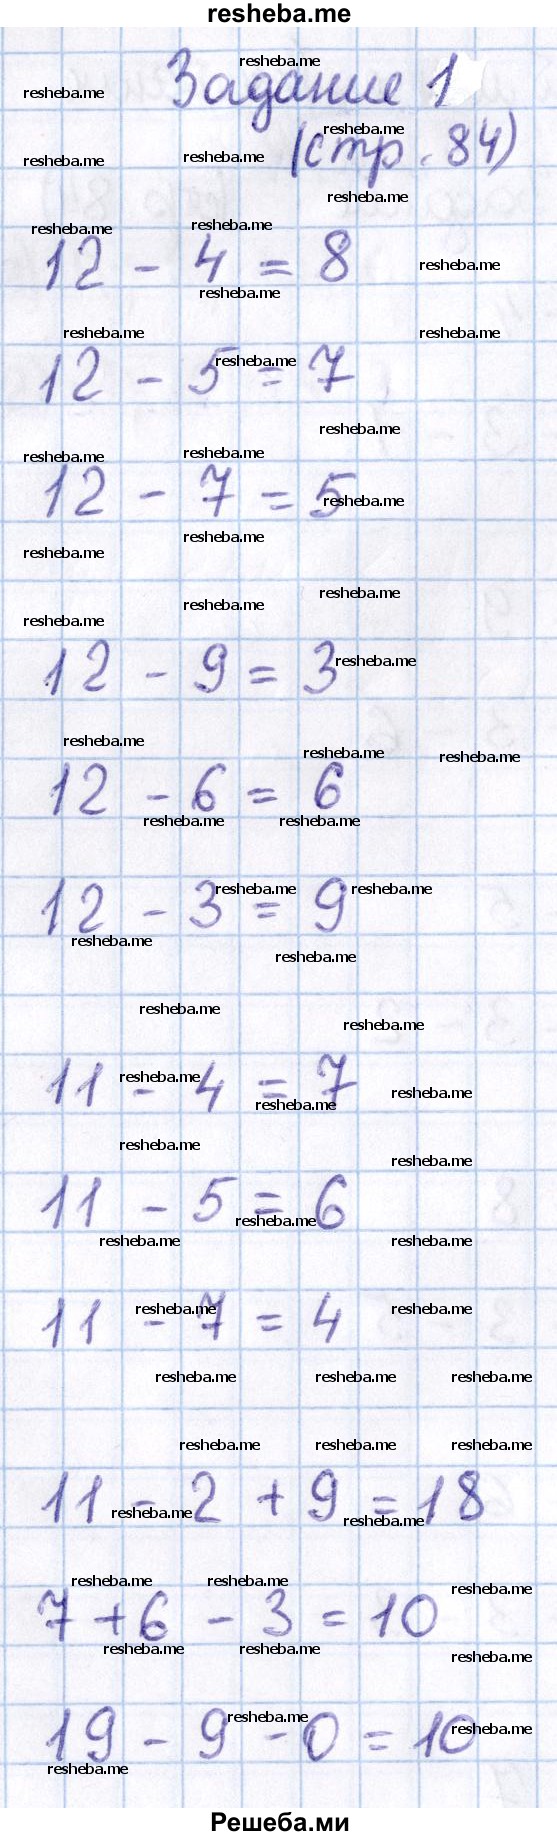 resheba.me
Задание 1
(стр. 84)
12 - 4 = 8
12 - 5 = 7
12 - 7 = 5
12 - 9 = 3
12 - 6 = 6
12 - 3 = 9
11 - 4 = 7
11 - 5 = 6
11 - 7 = 4
11 - 2 + 9 = 18
7 + 6 - 3 = 10
19 - 9 - 0 = 10
Решеба.ми